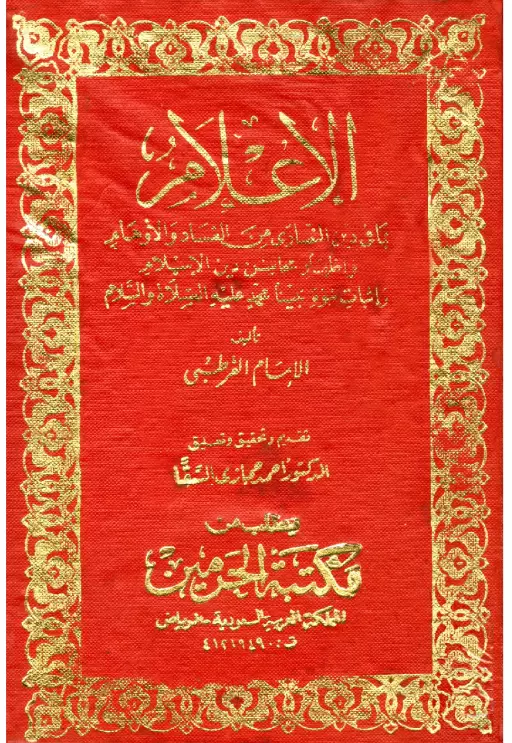 الإعلام
بما في دين النصارى من الفساد والأوهام
وإظهار محاسن دين الإسلام
وإثبات نبوة نبينا محمد عليه الصلاة والسلام
تأليف
الإمام القرطبي
تقديم وتحقيق وتعليق
الدكتور أحمد حجازى السقا
يطلب من
مكتبة الحرمين
المملكة العربية السعودية - الرياض
ت: ٤١٢١٩٤٩٠